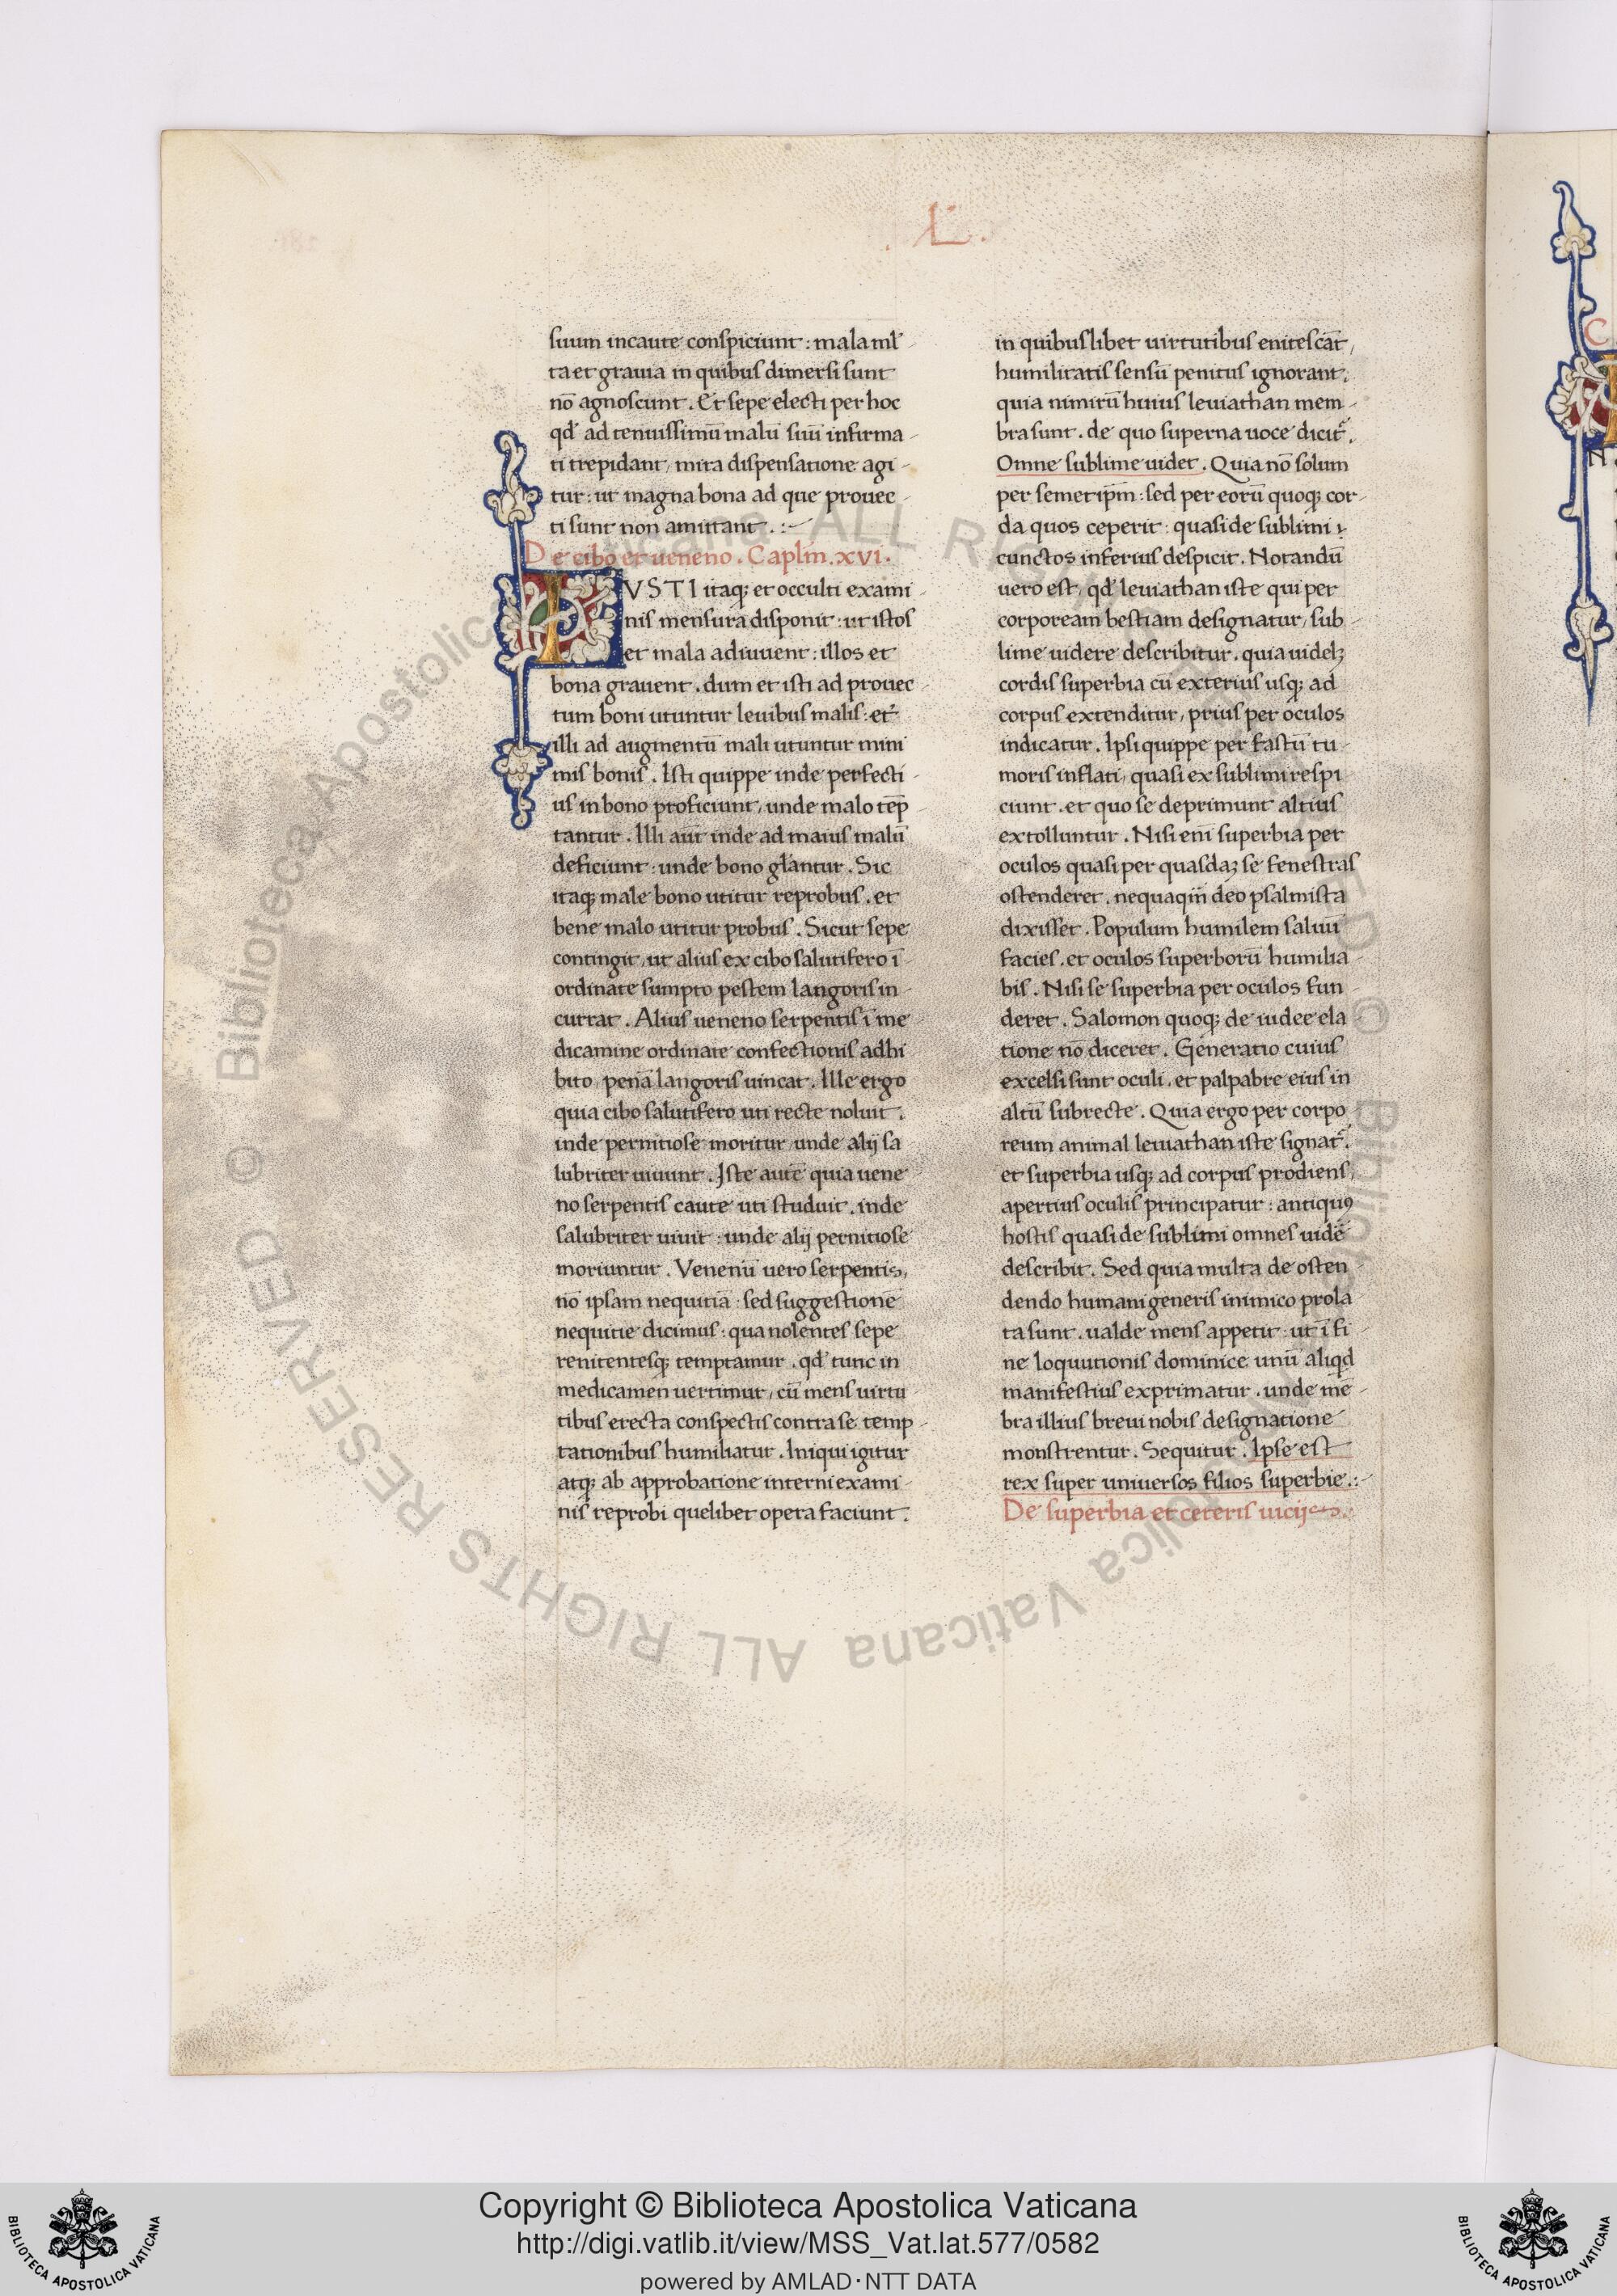 .L.
suum incaute conspiciunt : mala ml̕
ta et grauia in quibus dimersi sunt
nō agnoscunt . Et sepe electi per hoc
qd̕ ad tenuissimū malū suū infirma -
ti trepidant, mira dispensatione agi -
tur : ut magna bona ad que prouec -
ti sunt non amittant . : ~
De cibo et ueneno . Caplm̄ . xvi .
IVSTI itaq; et occulti exami -
nis mensura disponit : ut istos
et mala adiuuent : illos et
bona grauent . dum et isti ad prouec -
tum boni utuntur leuibus malis : et
illi ad augmentū mali utuntur mini
mis bonis . Isti quippe inde perfecti -
us in bono proficiunt, unde malo tēp -
tantur . Illi aūt inde ad maius malū
deficiunt : unde bono gl̕antur . Sic
itaq; male bono utitur reprobus . et
bene malo utitur probus . Sicut sepe
contingit, ut alius ex cibo salutifero ī -
ordinate sumpto pestem langoris in -
currat . Alius ueneno serpentis ī me -
dicamine ordinate confectionis adhi
bito, penā langoris uincat . Ille ergo
quia cibo salutifero uti recte noluit .
inde pernitiose moritur, unde alij sa
lubriter uiuunt . Iste autē quia uene
no serpentis caute uti studuit . inde
salubriter uiuit : unde alij pernitiose
moriuntur . Venenū uero serpentis,
nō ipsam nequitiā : sed suggestionē
nequitie dicimus : qua nolentes sepe
renitentesq; temptamur . qd̕ tunc in
medicamen uertimur, cū mens uirtu -
tibus erecta conspectis contra se temp -
tationibus humiliatur . Iniqui igitur
atq; ab approbatione interni exami -
nis reprobi quelibet opera faciunt .
in quibuslibet uirtutibus enitescāt,
humilitatis sensū penitus ignorant .
quia nimirū huius leuiathan mem -
bra sunt . de quo superna uoce dicit̕ .
Omne sublime uidet . Quia nō solum
per semetip̄m : sed per eorū quoq; cor -
da quos ceperit : quasi de sublimi
cunctos inferius despicit . Notandū
uero est, qd̕ leuiathan iste qui per
corpoream bestiam designatur, sub -
lime uidere describitur . quia uidelꝫ
cordis superbia cū exterius usq; ad
corpus extenditur, prius per oculos
indicatur . Ipsi quippe per fastū tu -
moris inflati, quasi ex sublimi respi
ciunt . et quo se deprimunt altius
extolluntur . Nisi enī superbia per
oculos quasi per quasdaꝫ se fenestras
ostenderet . nequaqm̄ deo psalmista
dixisset . Populum humilem saluū
facies . et oculos superborū humilia -
bis . Nisi se superbia per oculos fun -
deret . Salomon quoq; de iudee ela -
tione nō diceret . Generatio cuius
excelsi sunt oculi . et palpabre eius in
altū subrecte . Quia ergo per corpo
reum animal leuiathan iste signat̕ .
et superbia usq; ad corpus prodiens,
apertius oculis principatur : antiquꝰ
hostis quasi de sublimi omnes uidē
describit̕ . Sed quia multa de osten
dendo humani generis inimico prola
ta sunt . ualde mens appetit : ut ī fi
ne loquutionis dominice unū aliqd
manifestius exprimatur . unde mē -
bra illius breui nobis designatione
monstrentur . Sequitur . Ipse est
rex super uniuersos filios superbie . : -
De superbia et ceteris uicijs .
Copyright © Biblioteca Apostolica Vaticana
http://digi.vatlib.it/view/MSS_Vat.lat.577/0582
powered by AMLAD·NTT DATA
BIBLIOTECA APOSTOLICA VATICANA
BIBLIOTECA APOSTOLICA VATICANA